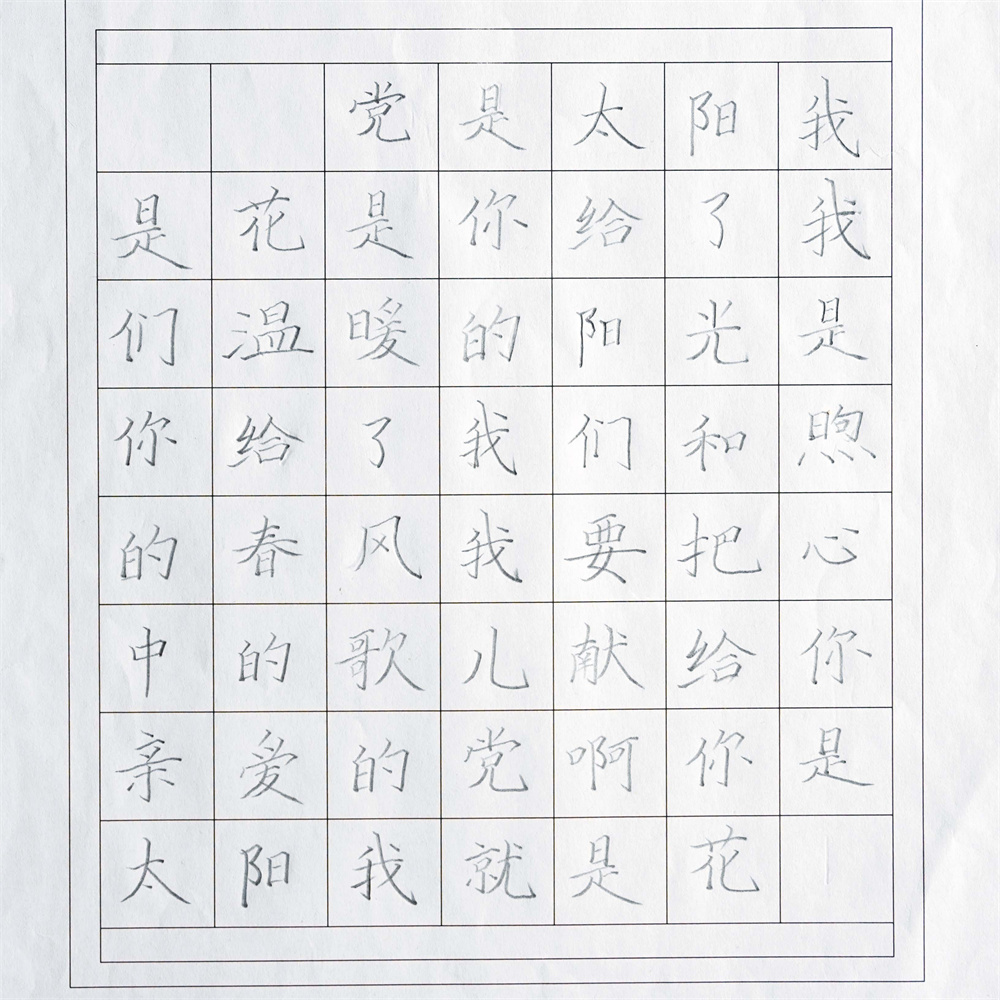 党是太阳我
是花是你给了我
们温暖的阳光是
你给了我们和煦
的春风我要把心
中的歌儿献给你
亲爱的党啊你是
太阳我就是花